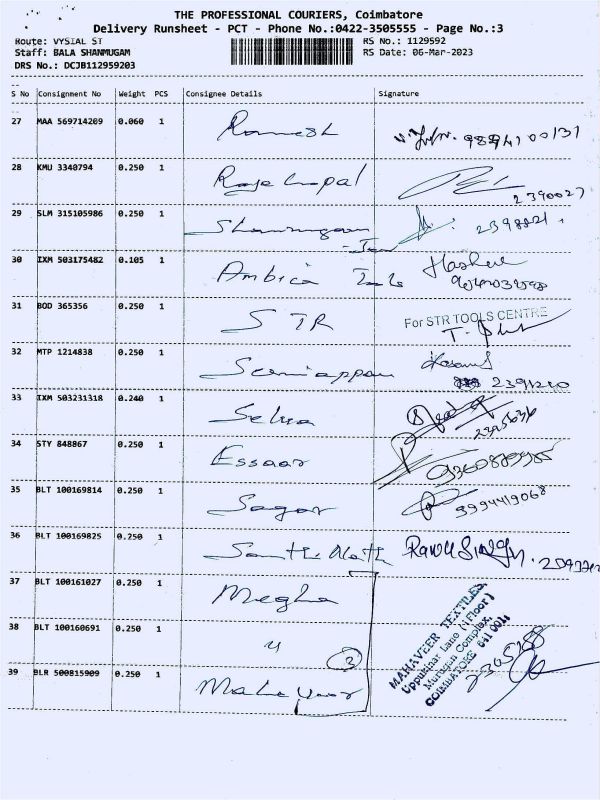 THE PROFESSIONAL COURIERS, Coimbatore
Delivery Runsheet - PCT - Phone No.:0422-3505555 - Page No.:3
Route: VYSIAL ST RS No.: 1129592
Staff: BALA SHANMUGAM RS Date: 06-Mar-2023
DRS No.: DCJB112959203
S No Consignment No Weight PCS Consignee Details Signature
27 MAA 569714209 0.060 1 Ramesh
28 KMU 3340794 0.250 1 Rajagopal 2390027
29 SLM 315105986 0.250 1 Shanmugam
30 IXM 503175482 0.105 1 Ambica
31 BOD 365356 0.250 1 STR For STR TOOLS CENTRE
32 MTP 1214838 0.250 1
33 IXM 503231318 0.240 1 Selva
34 STY 848867 0.250 1 Essaar
35 BLT 100169814 0.250 1 Sagar 9994419068
36 BLT 100169825 0.250 1
37 BLT 100161027 0.250 1 Megha
38 BLT 100160691 0.250 1 " 3
39 BLR 500815909 0.250 1 Mahaveer
MAHAVEER TEXTILES,
Uppukinar Lane (I Floor)
Murugan Complex,
COIMBATORE 641 001